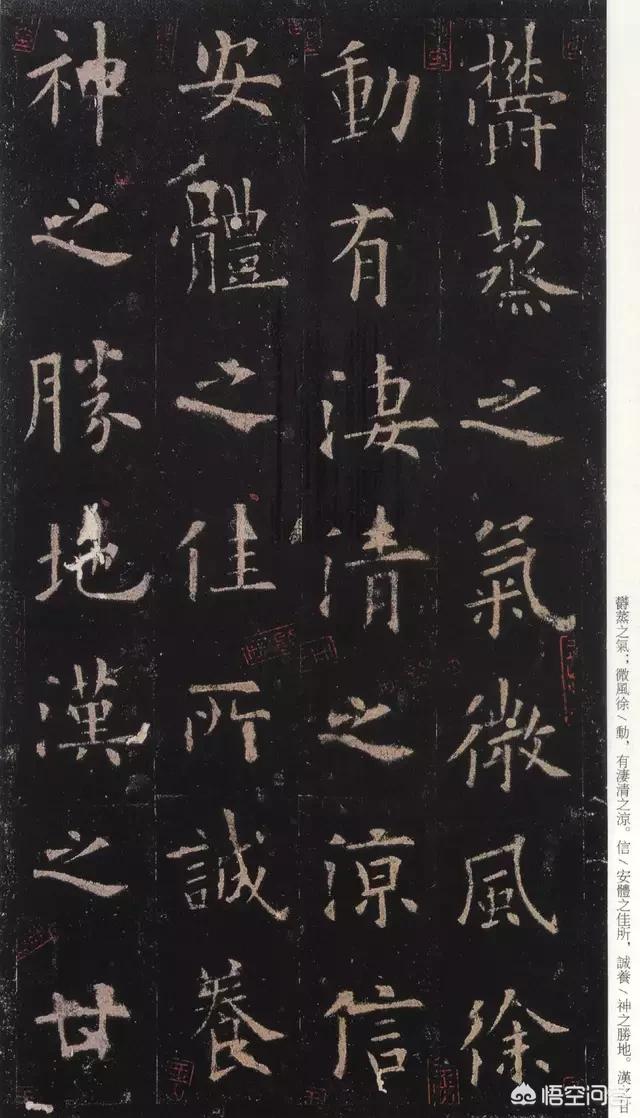 鬱蒸之氣微風徐
動有淒清之涼信
安體之佳所誠養
神之勝地漢之甘
鬱蒸之氣；微風徐／動，有淒清之涼。信／安體之佳所，誠養／神之勝地。漢之甘
悟空问答